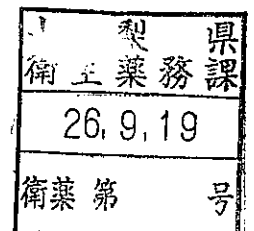 山梨県
衛生薬務課
26.9.19
衛薬第 号